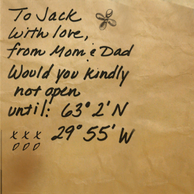 To Jack
With love,
from Mom & Dad
Would you kindly
not open
until: 63° 2' N
29° 55' W
x x x
o o o